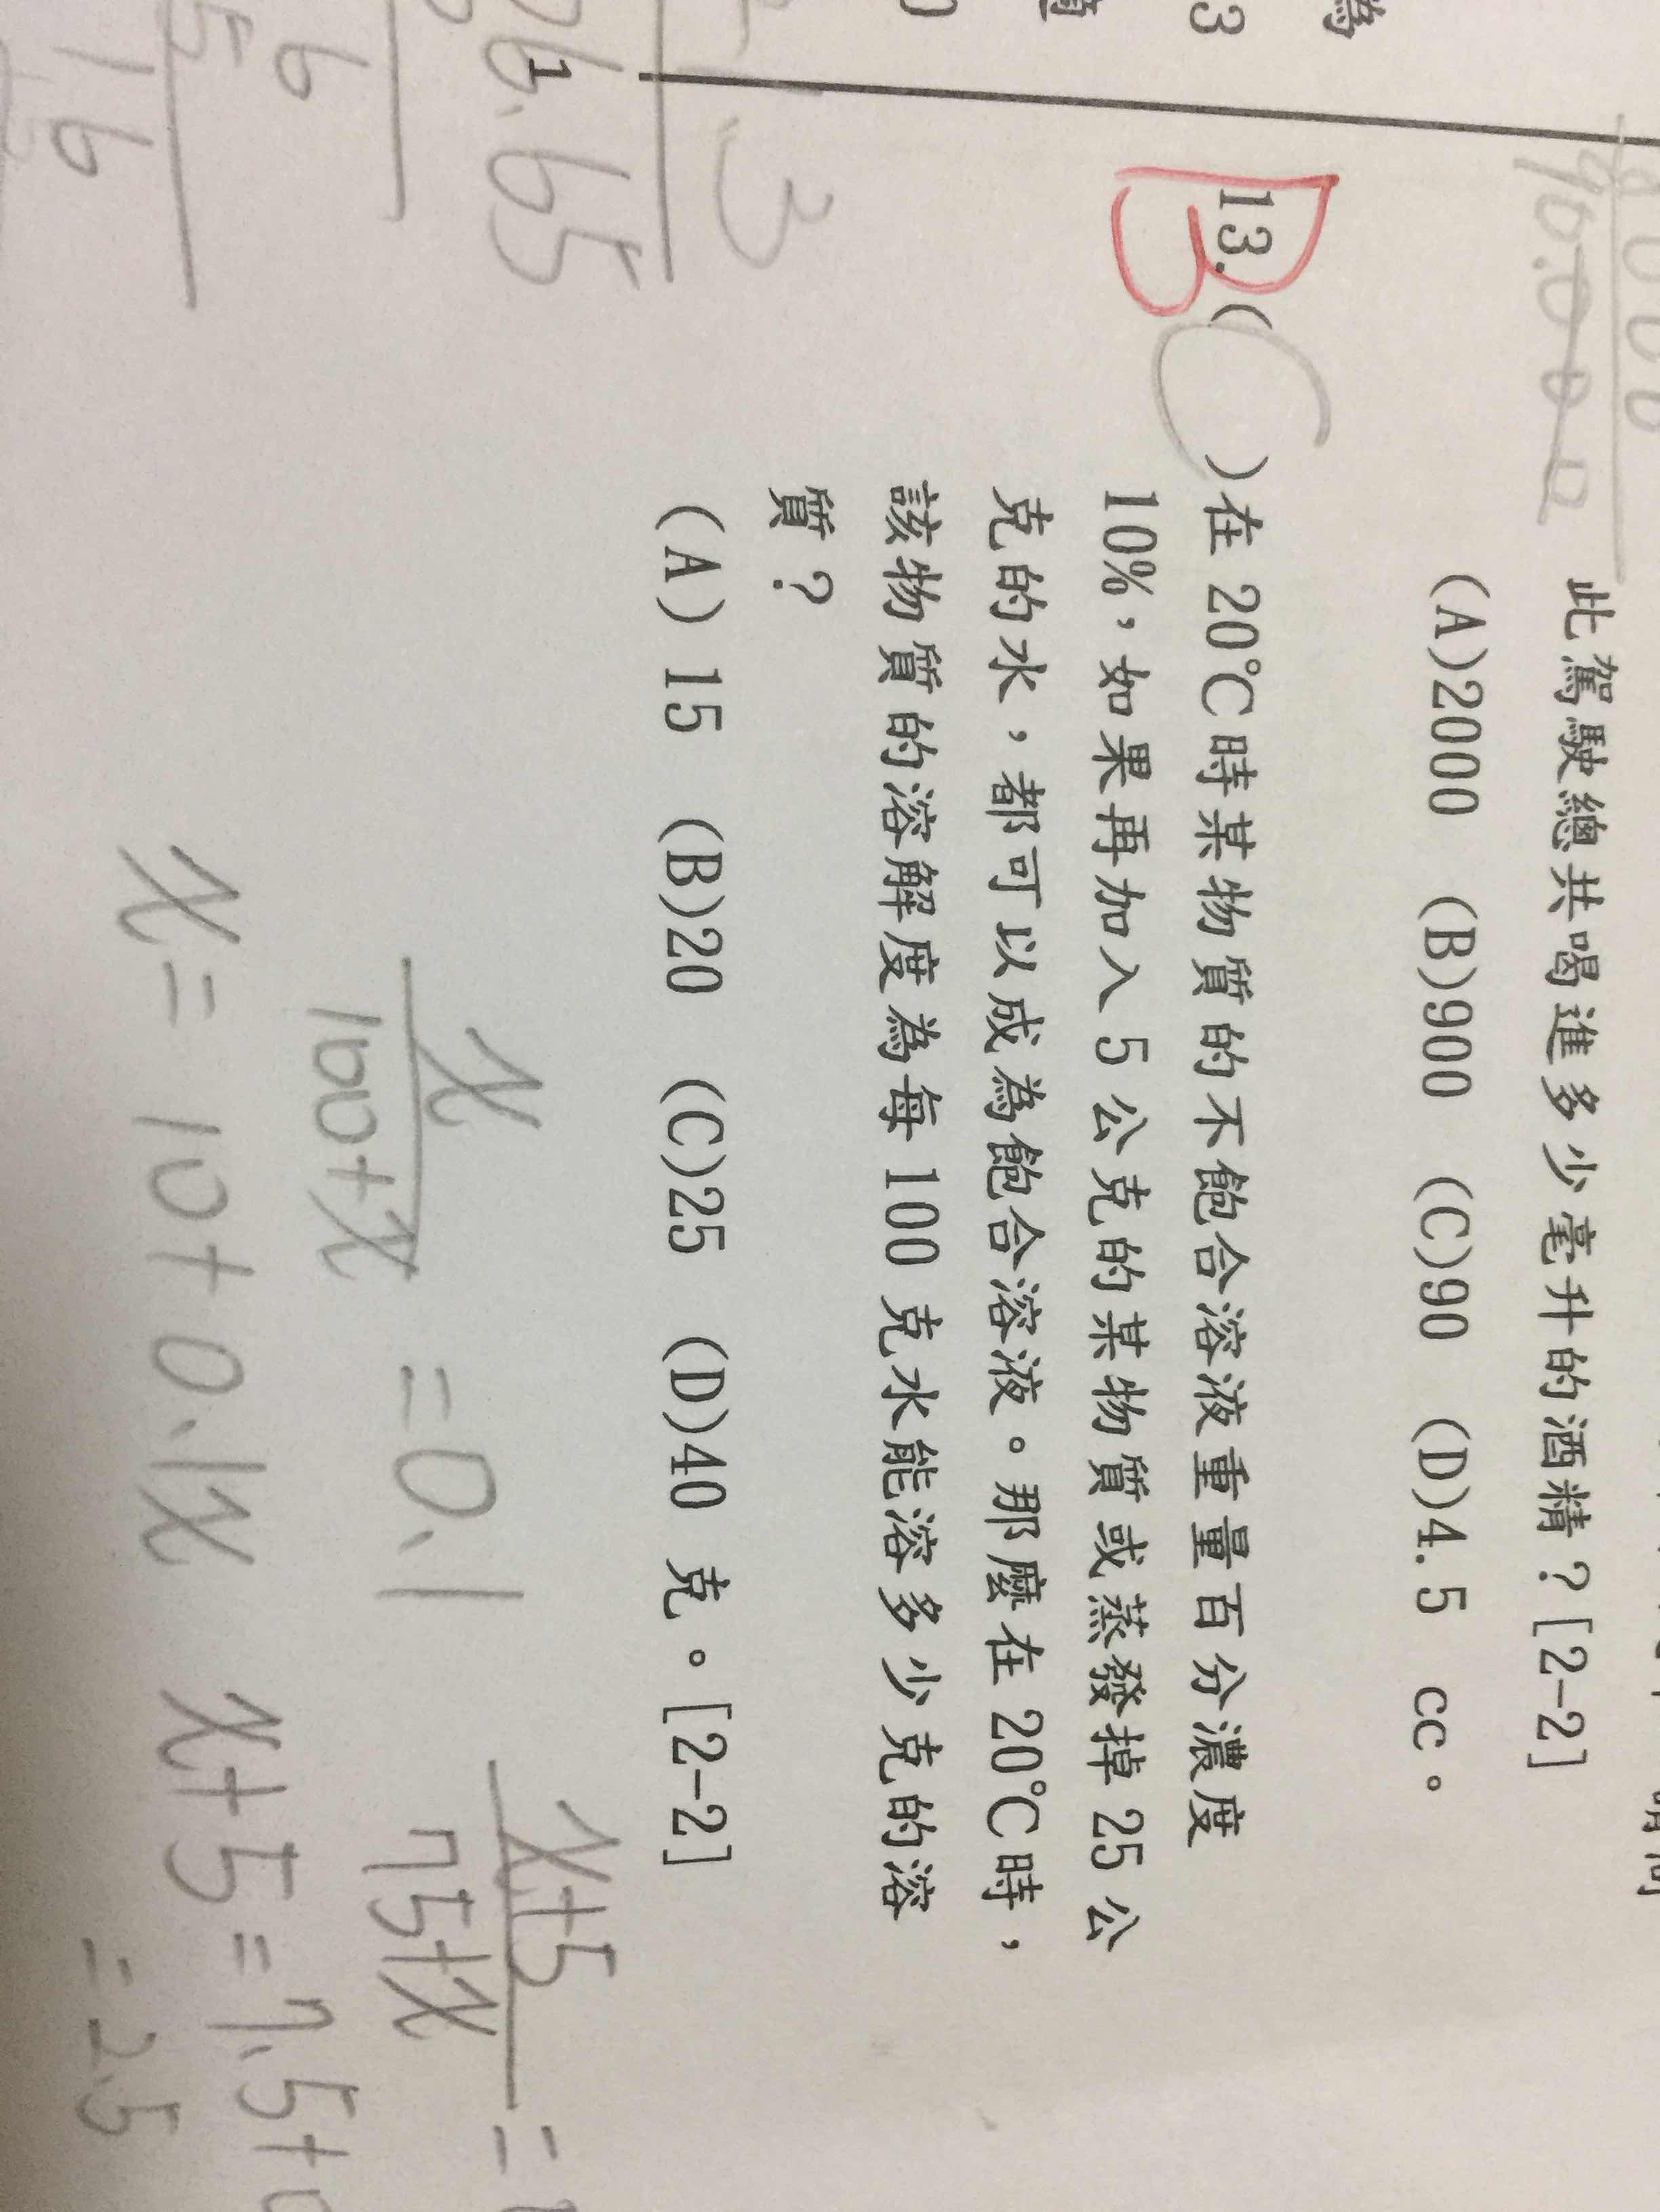 此駕駛總共喝進多少毫升的酒精？[2-2]
(A)2000 (B)900 (C)90 (D)4.5 cc。
B
13.( C )在 20℃時某物質的不飽合溶液重量百分濃度
10%，如果再加入 5 公克的某物質或蒸發掉 25 公
克的水，都可以成為飽合溶液。那麼在 20℃時，
該物質的溶解度為每 100 克水能溶多少克的溶
質？
(A) 15 (B)20 (C)25 (D)40 克。[2-2]
x/100+x = 0.1
x+5/75+x =
x = 10 + 0.1x
x+5 = 7.5+
= 2.5
3
6.65
6
5
16